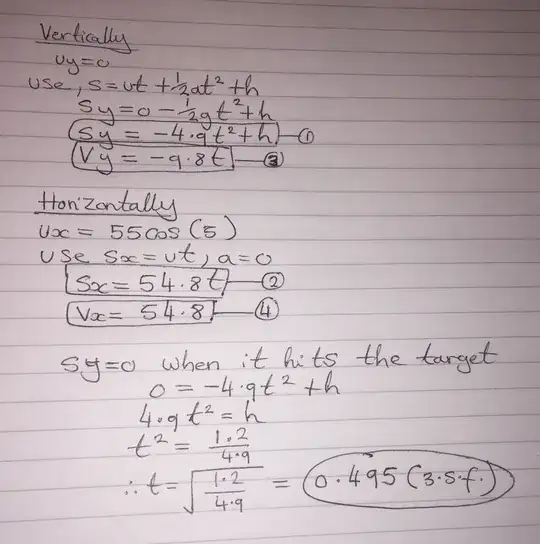 Vertically
uy=0
use, s=ut+½at²+h
Sy=0-½gt²+h
Sy = -4.9t²+h ①
Vy = -9.8t ③
Horizontally
ux = 55cos(5)
use Sx=ut, a=0
Sx = 54.8t ②
Vx = 54.8 ④
Sy=0 when it hits the target
0 = -4.9t²+h
4.9t²=h
t² = 1.2/4.9
∴t=√(1.2/4.9) = 0.495 (3.s.f.)